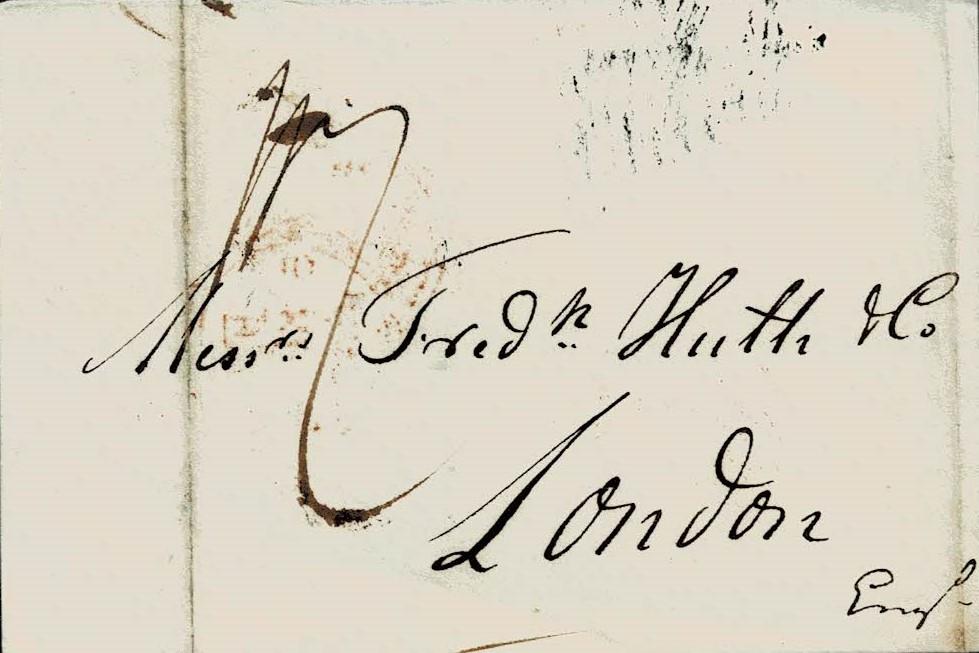 Messrs Fredk Huth & Co
London
Engd